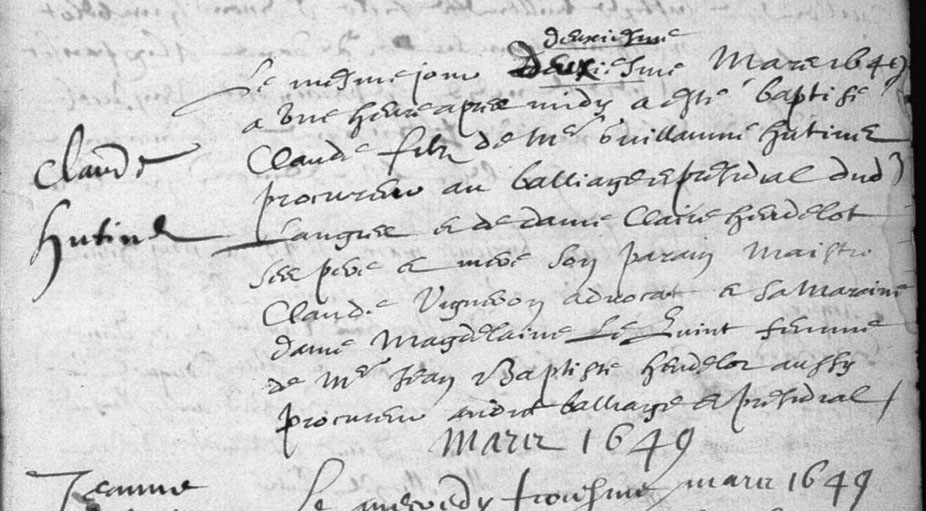 deuxiesme
Le mesme jour deuxiesme Mars 1649
a une heure apres midy a esté baptisé
Claude
Claude filz de Mre Guillaume hutinet
procureur au balliage et presidial dud
Hutinet
Langres et de dame Claire hendelot
ses pere et mere son parain Maistre
Claude Vigneron advocat et sa Maraine
dame Magdelaine Le Quint femme
de Mre Jean Baptiste hendelot aussy
procureur audit balliage et presidial /
Mars 1649
Jeanne
Le mercredy troisiesme mars 1649